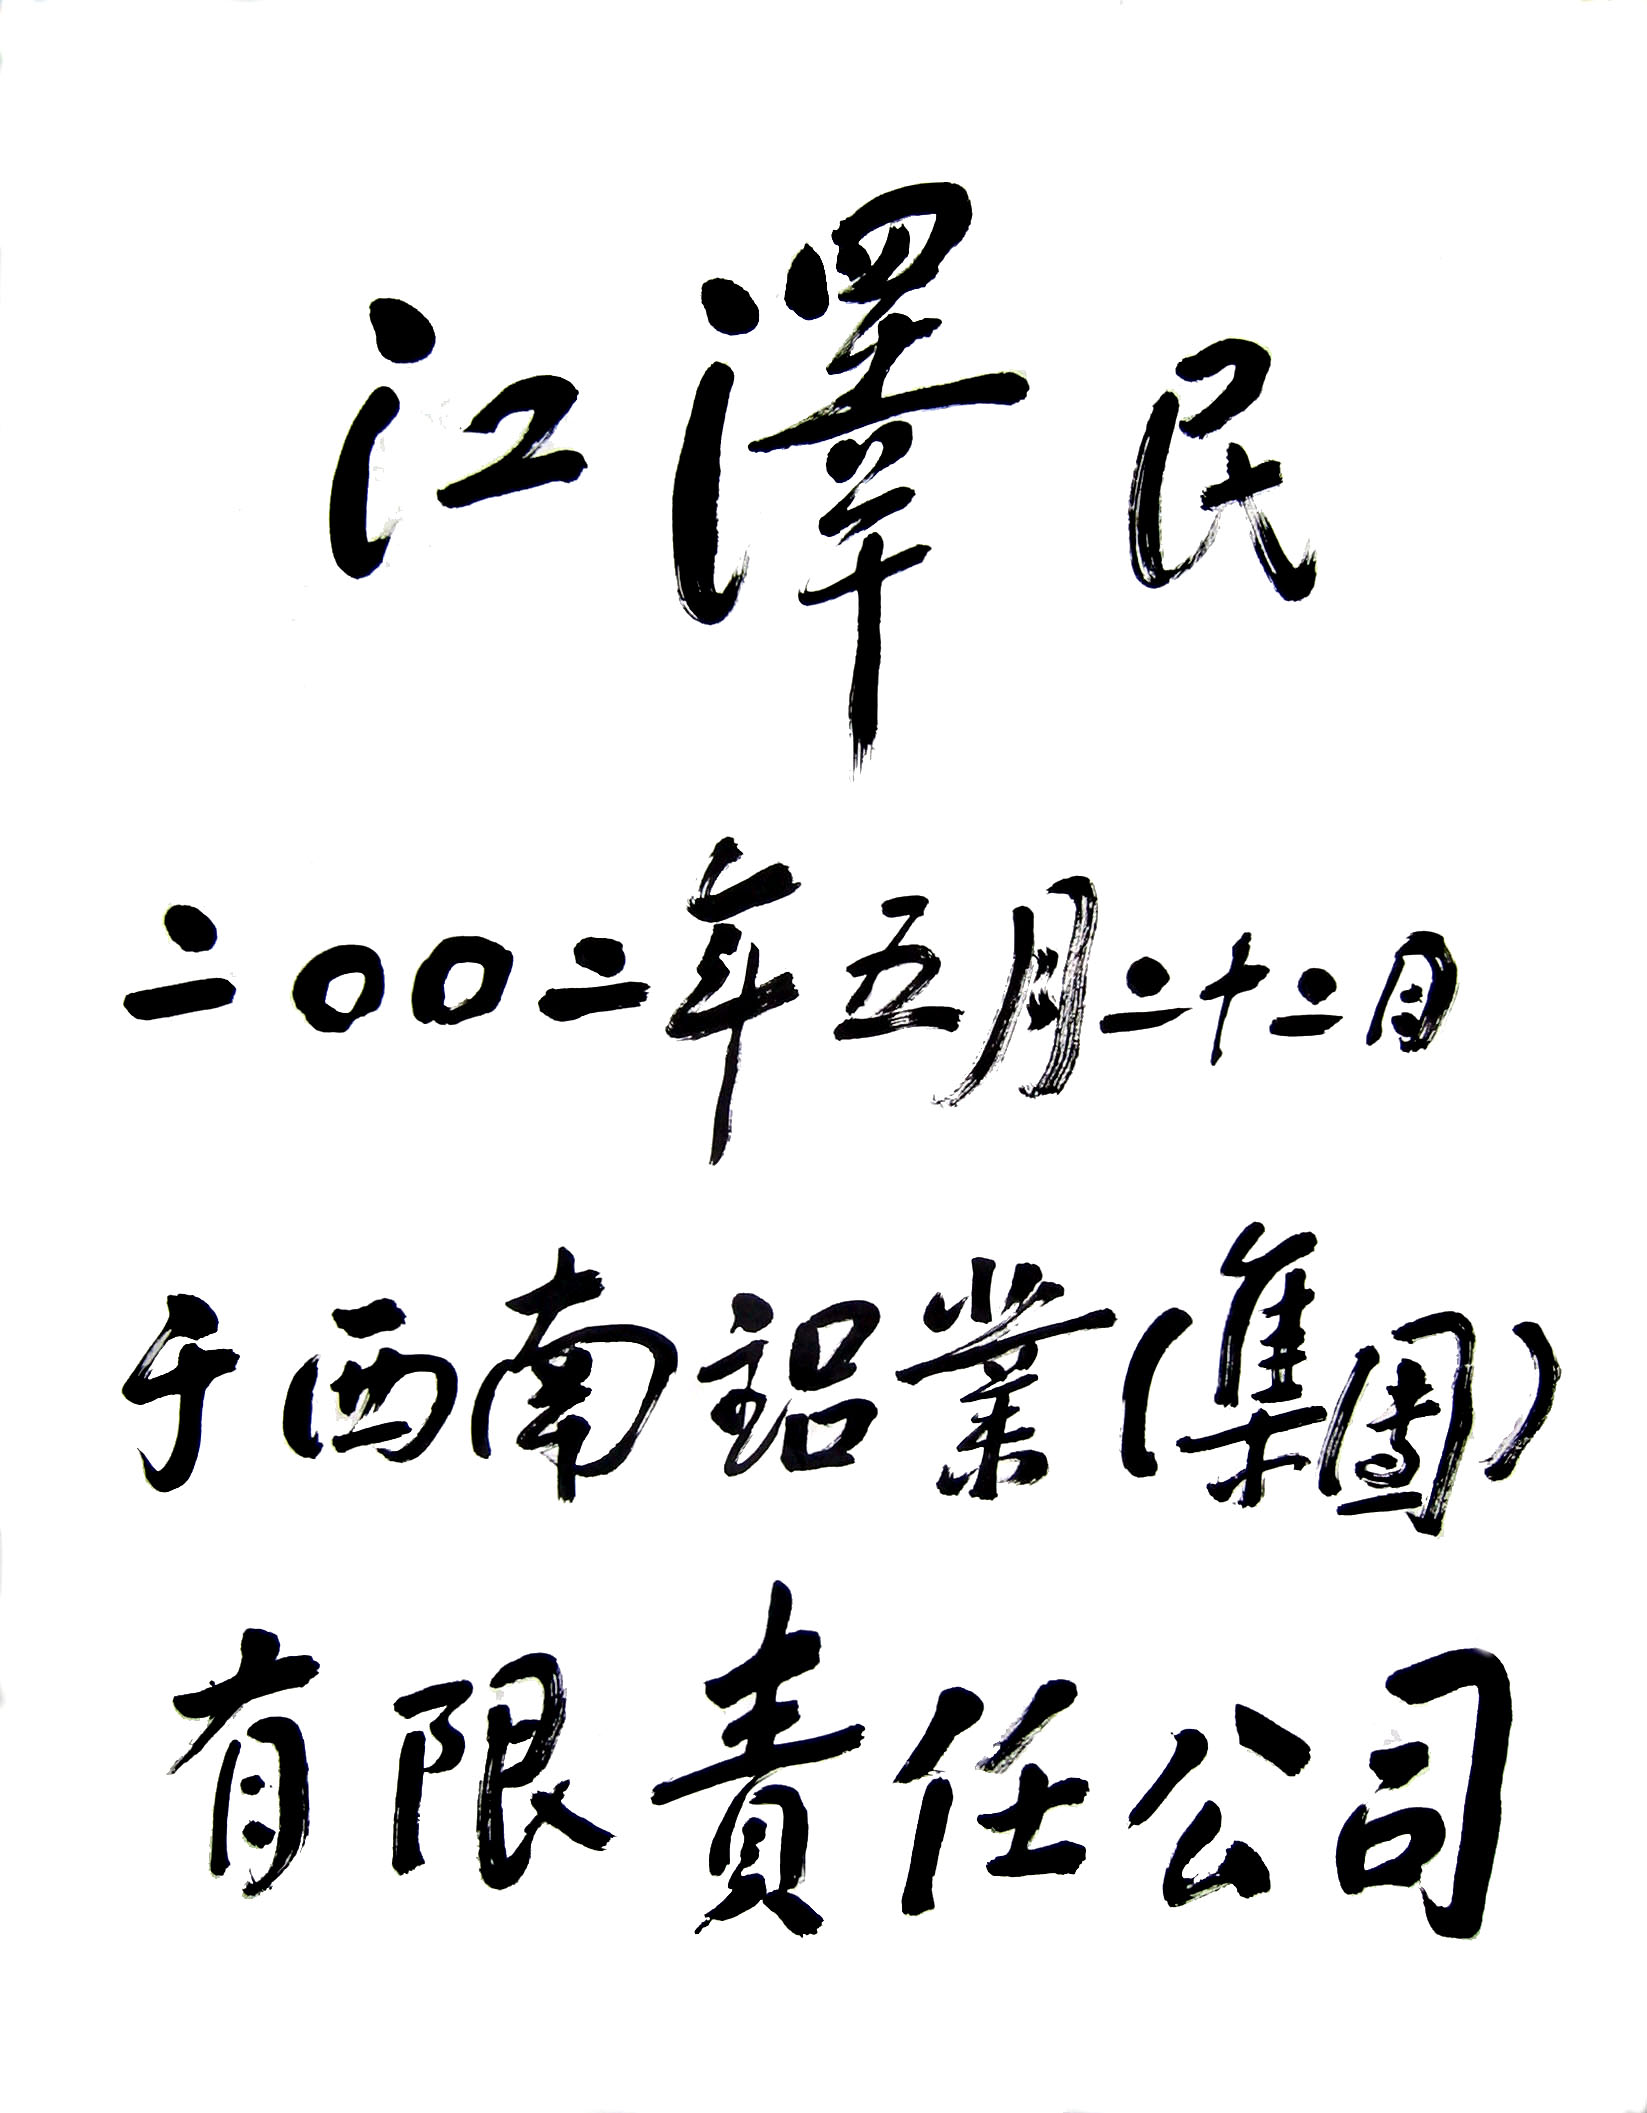 江澤民
二〇〇二年五月二十二日
于西南鋁業(集團)
有限責任公司